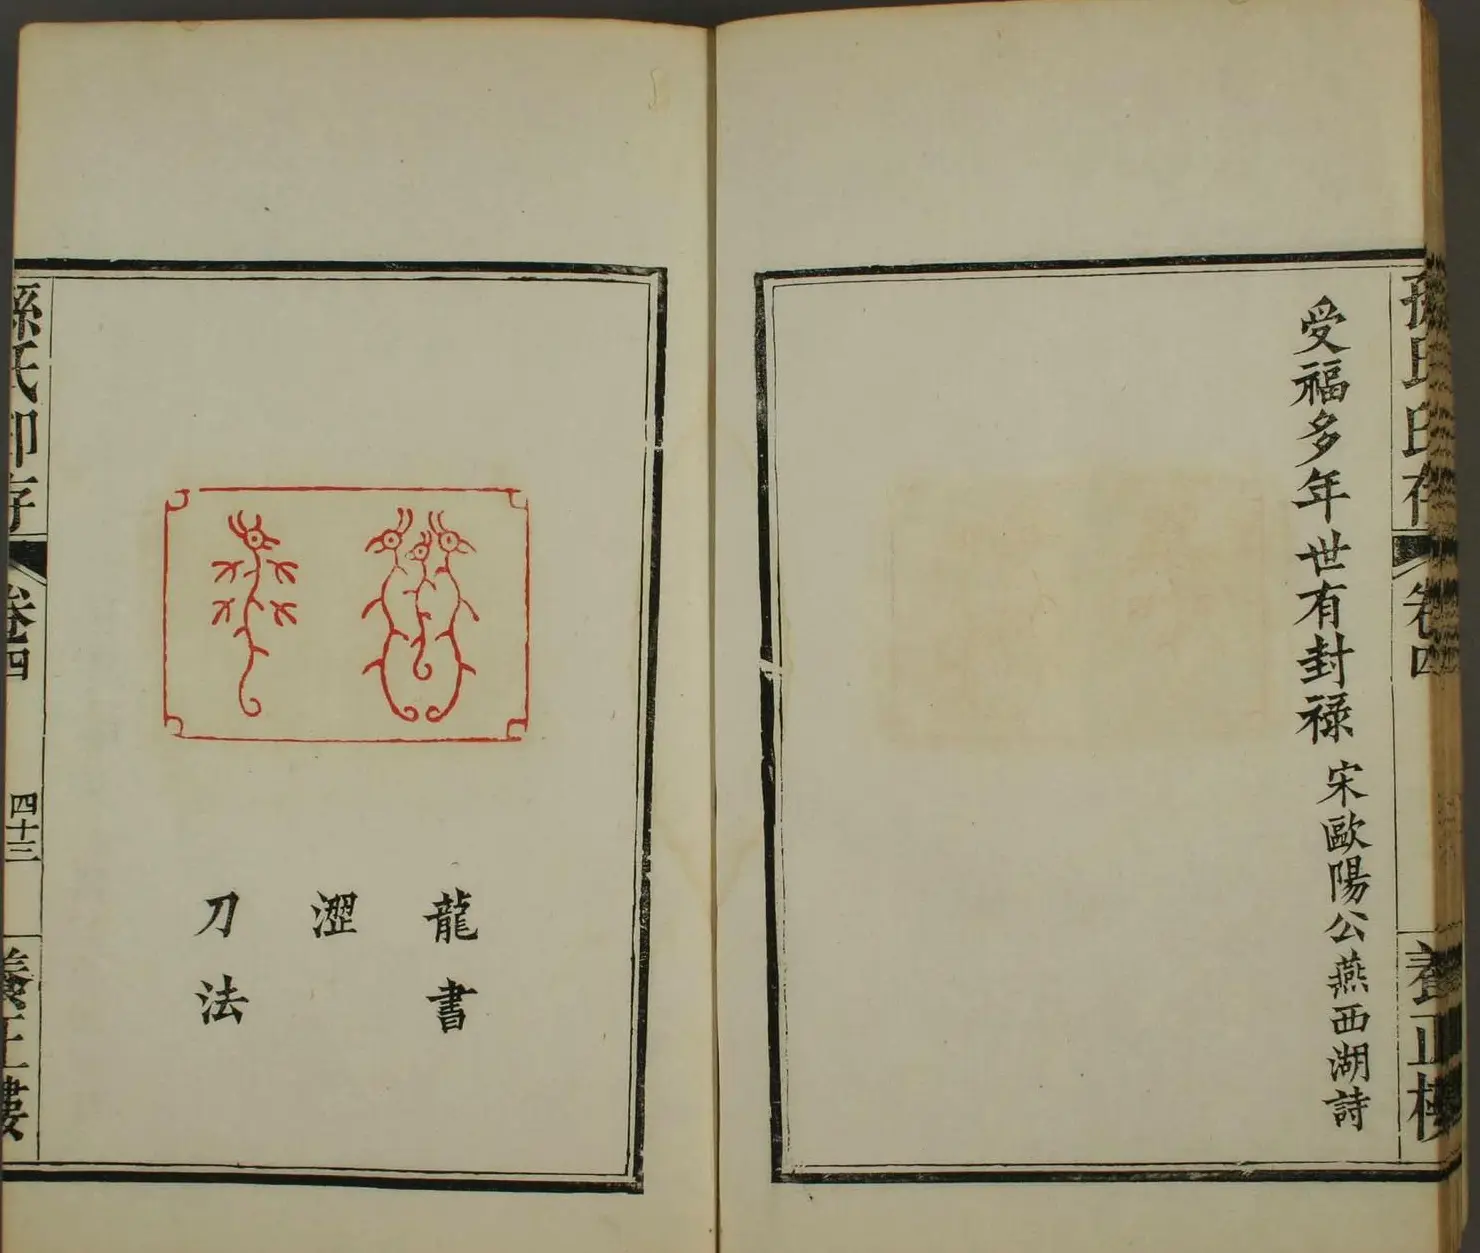 孫氏印存
卷四
養正樓
受福多年世有封祿
宋歐陽公燕西湖詩
龍書
澀
刀法
孫氏印存
卷四
四十三
養正樓